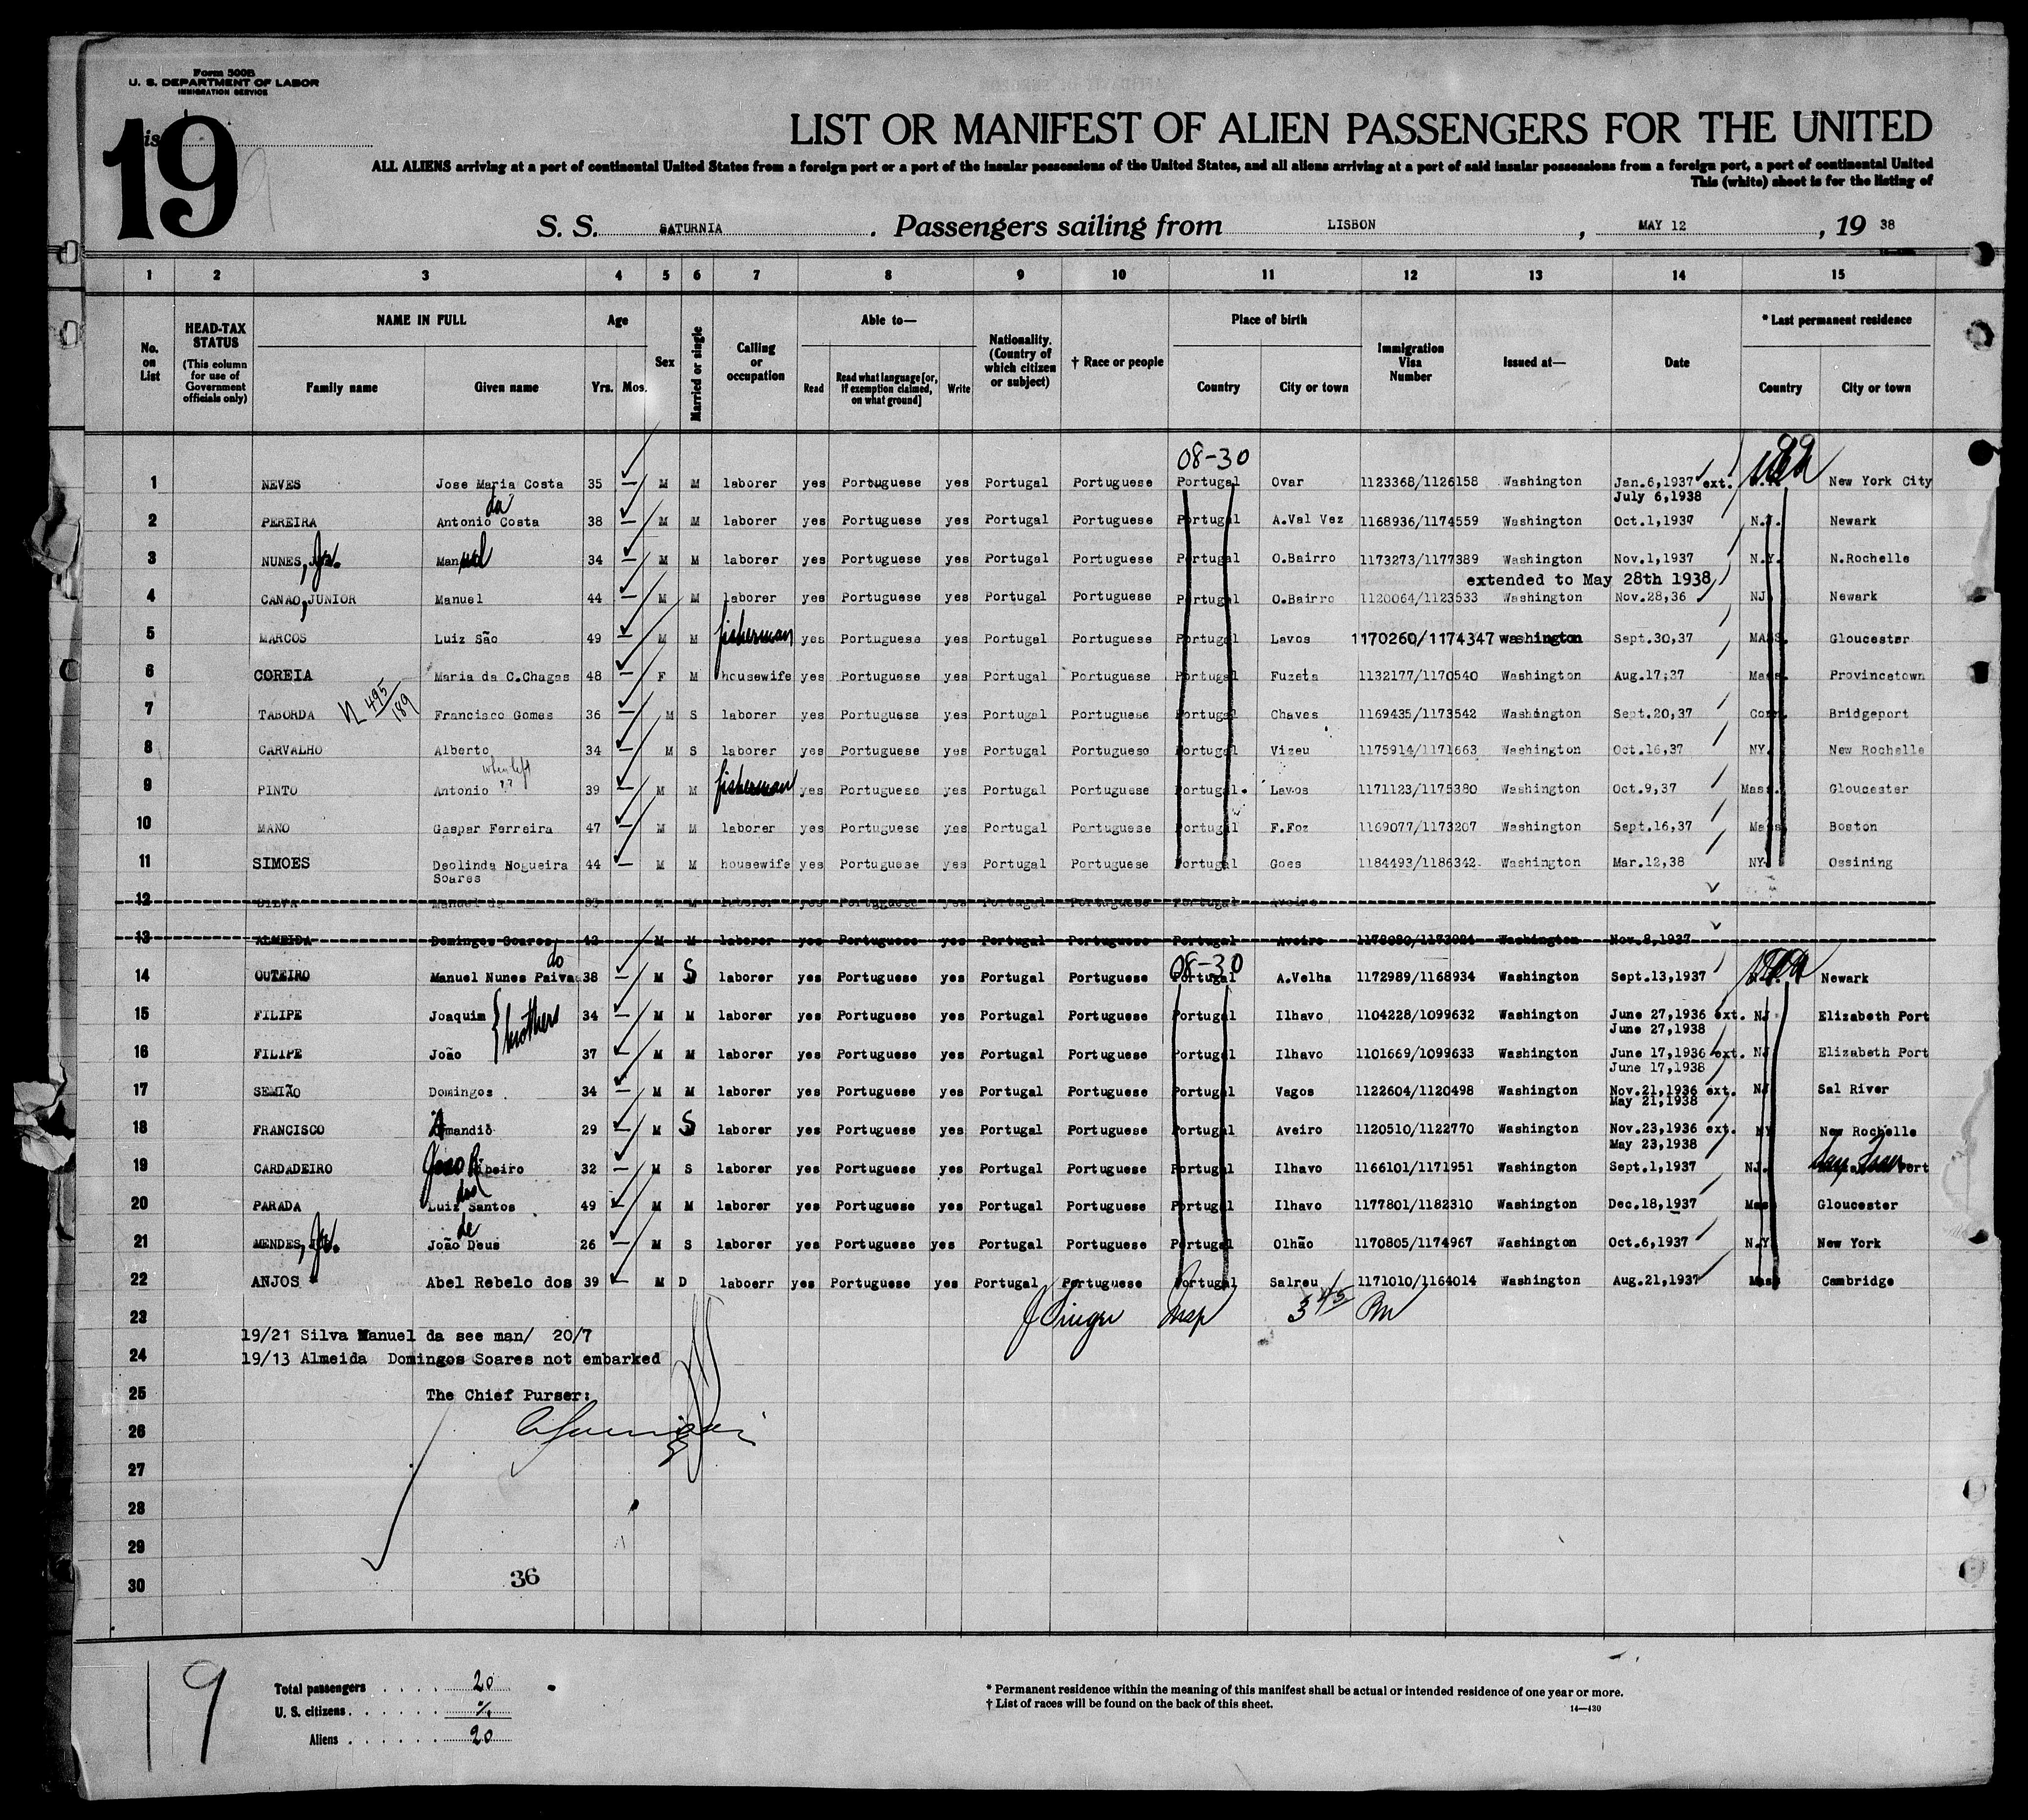 Form 500B
U. S. DEPARTMENT OF LABOR
IMMIGRATION SERVICE
19
LIST OR MANIFEST OF ALIEN PASSENGERS FOR THE UNITED
ALL ALIENS arriving at a port of continental United States from a foreign port or a port of the insular possessions of the United States, and all aliens arriving at a port of said insular possessions from a foreign port, a port of continental United
This (white) sheet is for the listing of
S. S. SATURNIA . Passengers sailing from LISBON , MAY 12 , 19 38
1 2 3 4 5 6 7 8 9 10 11 12 13 14 15
No. on List
HEAD-TAX STATUS (This column for use of Government officials only)
NAME IN FULL Family name Given name
Age Yrs. Mos.
Sex
Married or single
Calling or occupation
Able to— Read Read what language [or, if exemption claimed, on what ground] Write
Nationality. (Country of which citizen or subject)
† Race or people
Place of birth Country City or town
Immigration Visa Number
Issued at—
Date
* Last permanent residence Country City or town
08-30
1 NEVES Jose Maria Costa 35 — M M laborer yes Portuguese yes Portugal Portuguese Portugal Ovar 1123368/1126158 Washington Jan.6,1937 ext. New York City
July 6,1938
da
2 PEREIRA Antonio Costa 38 — M M laborer yes Portuguese yes Portugal Portuguese Portugal A.Val Vez 1168936/1174559 Washington Oct.1,1937 N.J. Newark
3 NUNES, Jr. Manuel 34 — M M laborer yes Portuguese yes Portugal Portuguese Portugal O.Bairro 1173273/1177389 Washington Nov.1,1937 N.Y. N.Rochelle
extended to May 28th 1938
4 CANAO,JUNIOR Manuel 44 — M M laborer yes Portuguese yes Portugal Portuguese Portugal O.Bairro 1120064/1123533 Washington Nov.28,36 NJ Newark
5 MARCOS Luiz São 49 — M M fisherman yes Portuguese yes Portugal Portuguese Portugal Lavos 1170260/1174347 washington Sept.30,37 MASS. Gloucester
6 COREIA Maria da C.Chagas 48 — F M housewife yes Portuguese yes Portugal Portuguese Portugal Fuzeta 1132177/1170540 Washington Aug.17;37 Mass. Provincetown
495/189
7 TABORDA Francisco Gomes 36 — M S laborer yes Portuguese yes Portugal Portuguese Portugal Chaves 1169435/1173542 Washington Sept.20,37 Conn. Bridgeport
8 CARVALHO Alberto 34 — M S laborer yes Portuguese yes Portugal Portuguese Portugal Vizeu 1175914/1171663 Washington Oct.16,37 NY. New Rochelle
when left
9 PINTO Antonio ?? 39 — M M fisherman yes Portuguese yes Portugal Portuguese Portugal. Lavos 1171123/1175380 Washington Oct.9,37 Mass. Gloucester
10 MANO Gaspar Ferreira 47 — M M laborer yes Portuguese yes Portugal Portuguese Portugal F.Foz 1169077/1173207 Washington Sept.16,37 Mass Boston
11 SIMOES Deolinda Nogueira 44 — M M housewife yes Portuguese yes Portugal Portuguese Portugal Goes 1184493/1186342 Washington Mar.12,38 NY Ossining
Soares
12 SILVA Manuel da M M laborer yes Portuguese yes Portugal Portuguese Portugal Aveiro
13 ALMEIDA Domingos Soares 42 M M laborer yes Portuguese yes Portugal Portuguese Portugal Aveiro Washington Nov.8,1937
do 08-30
14 OUTEIRO Manuel Nunes Paiva 38 — M S laborer yes Portuguese yes Portugal Portuguese Portugal A.Velha 1172989/1168934 Washington Sept.13,1937 Newark
15 FILIPE Joaquim } brothers 34 — M M laborer yes Portuguese yes Portugal Portuguese Portugal Ilhavo 1104228/1099632 Washington June 27,1936 ext. NJ Elizabeth Port
June 27,1938
16 FILIPE João 37 — M M laborer yes Portuguese yes Portugal Portuguese Portugal Ilhavo 1101669/1099633 Washington June 17,1936 ext. NJ Elizabeth Port
June 17,1938
17 SEMIÃO Domingos 34 — M M laborer yes Portuguese yes Portugal Portuguese Portugal Vagos 1122604/1120498 Washington Nov.21,1936 ext. NJ Sal River
May 21,1938
18 FRANCISCO Amandio 29 — M S laborer yes Portuguese yes Portugal Portuguese Portugal Aveiro 1120510/1122770 Washington Nov.23,1936 ext. NY New Rochelle
May 23,1938
19 CARDADEIRO Joao Ribeiro 32 — M S laborer yes Portuguese yes Portugal Portuguese Portugal Ilhavo 1166101/1171951 Washington Sept.1,1937 NJ.
dos
20 PARADA Luiz Santos 49 — M M laborer yes Portuguese yes Portugal Portuguese Portugal Ilhavo 1177801/1182310 Washington Dec.18,1937 Mass Gloucester
de
21 MENDES, Jr. João Deus 26 — M S laborer yes Portuguese yes Portugal Portuguese Portugal Olhão 1170805/1174967 Washington Oct.6,1937 N.Y. New York
22 ANJOS Abel Rebelo dos 39 — M D laboerr yes Portuguese yes Portugal Portuguese Portugal Salreu 1171010/1164014 Washington Aug.21,1937 Mass Cambridge
23 Insp 3 45 Pm
19/21 Silva Manuel da see man/ 20/7
24 19/13 Almeida Domingos Soares not embarked
25 The Chief Purser:
26
27
28
29
30 36
19
Total passengers . . . . 20
U. S. citizens . . . . . .
Aliens . . . . . . 20
* Permanent residence within the meaning of this manifest shall be actual or intended residence of one year or more.
† List of races will be found on the back of this sheet.
14—430